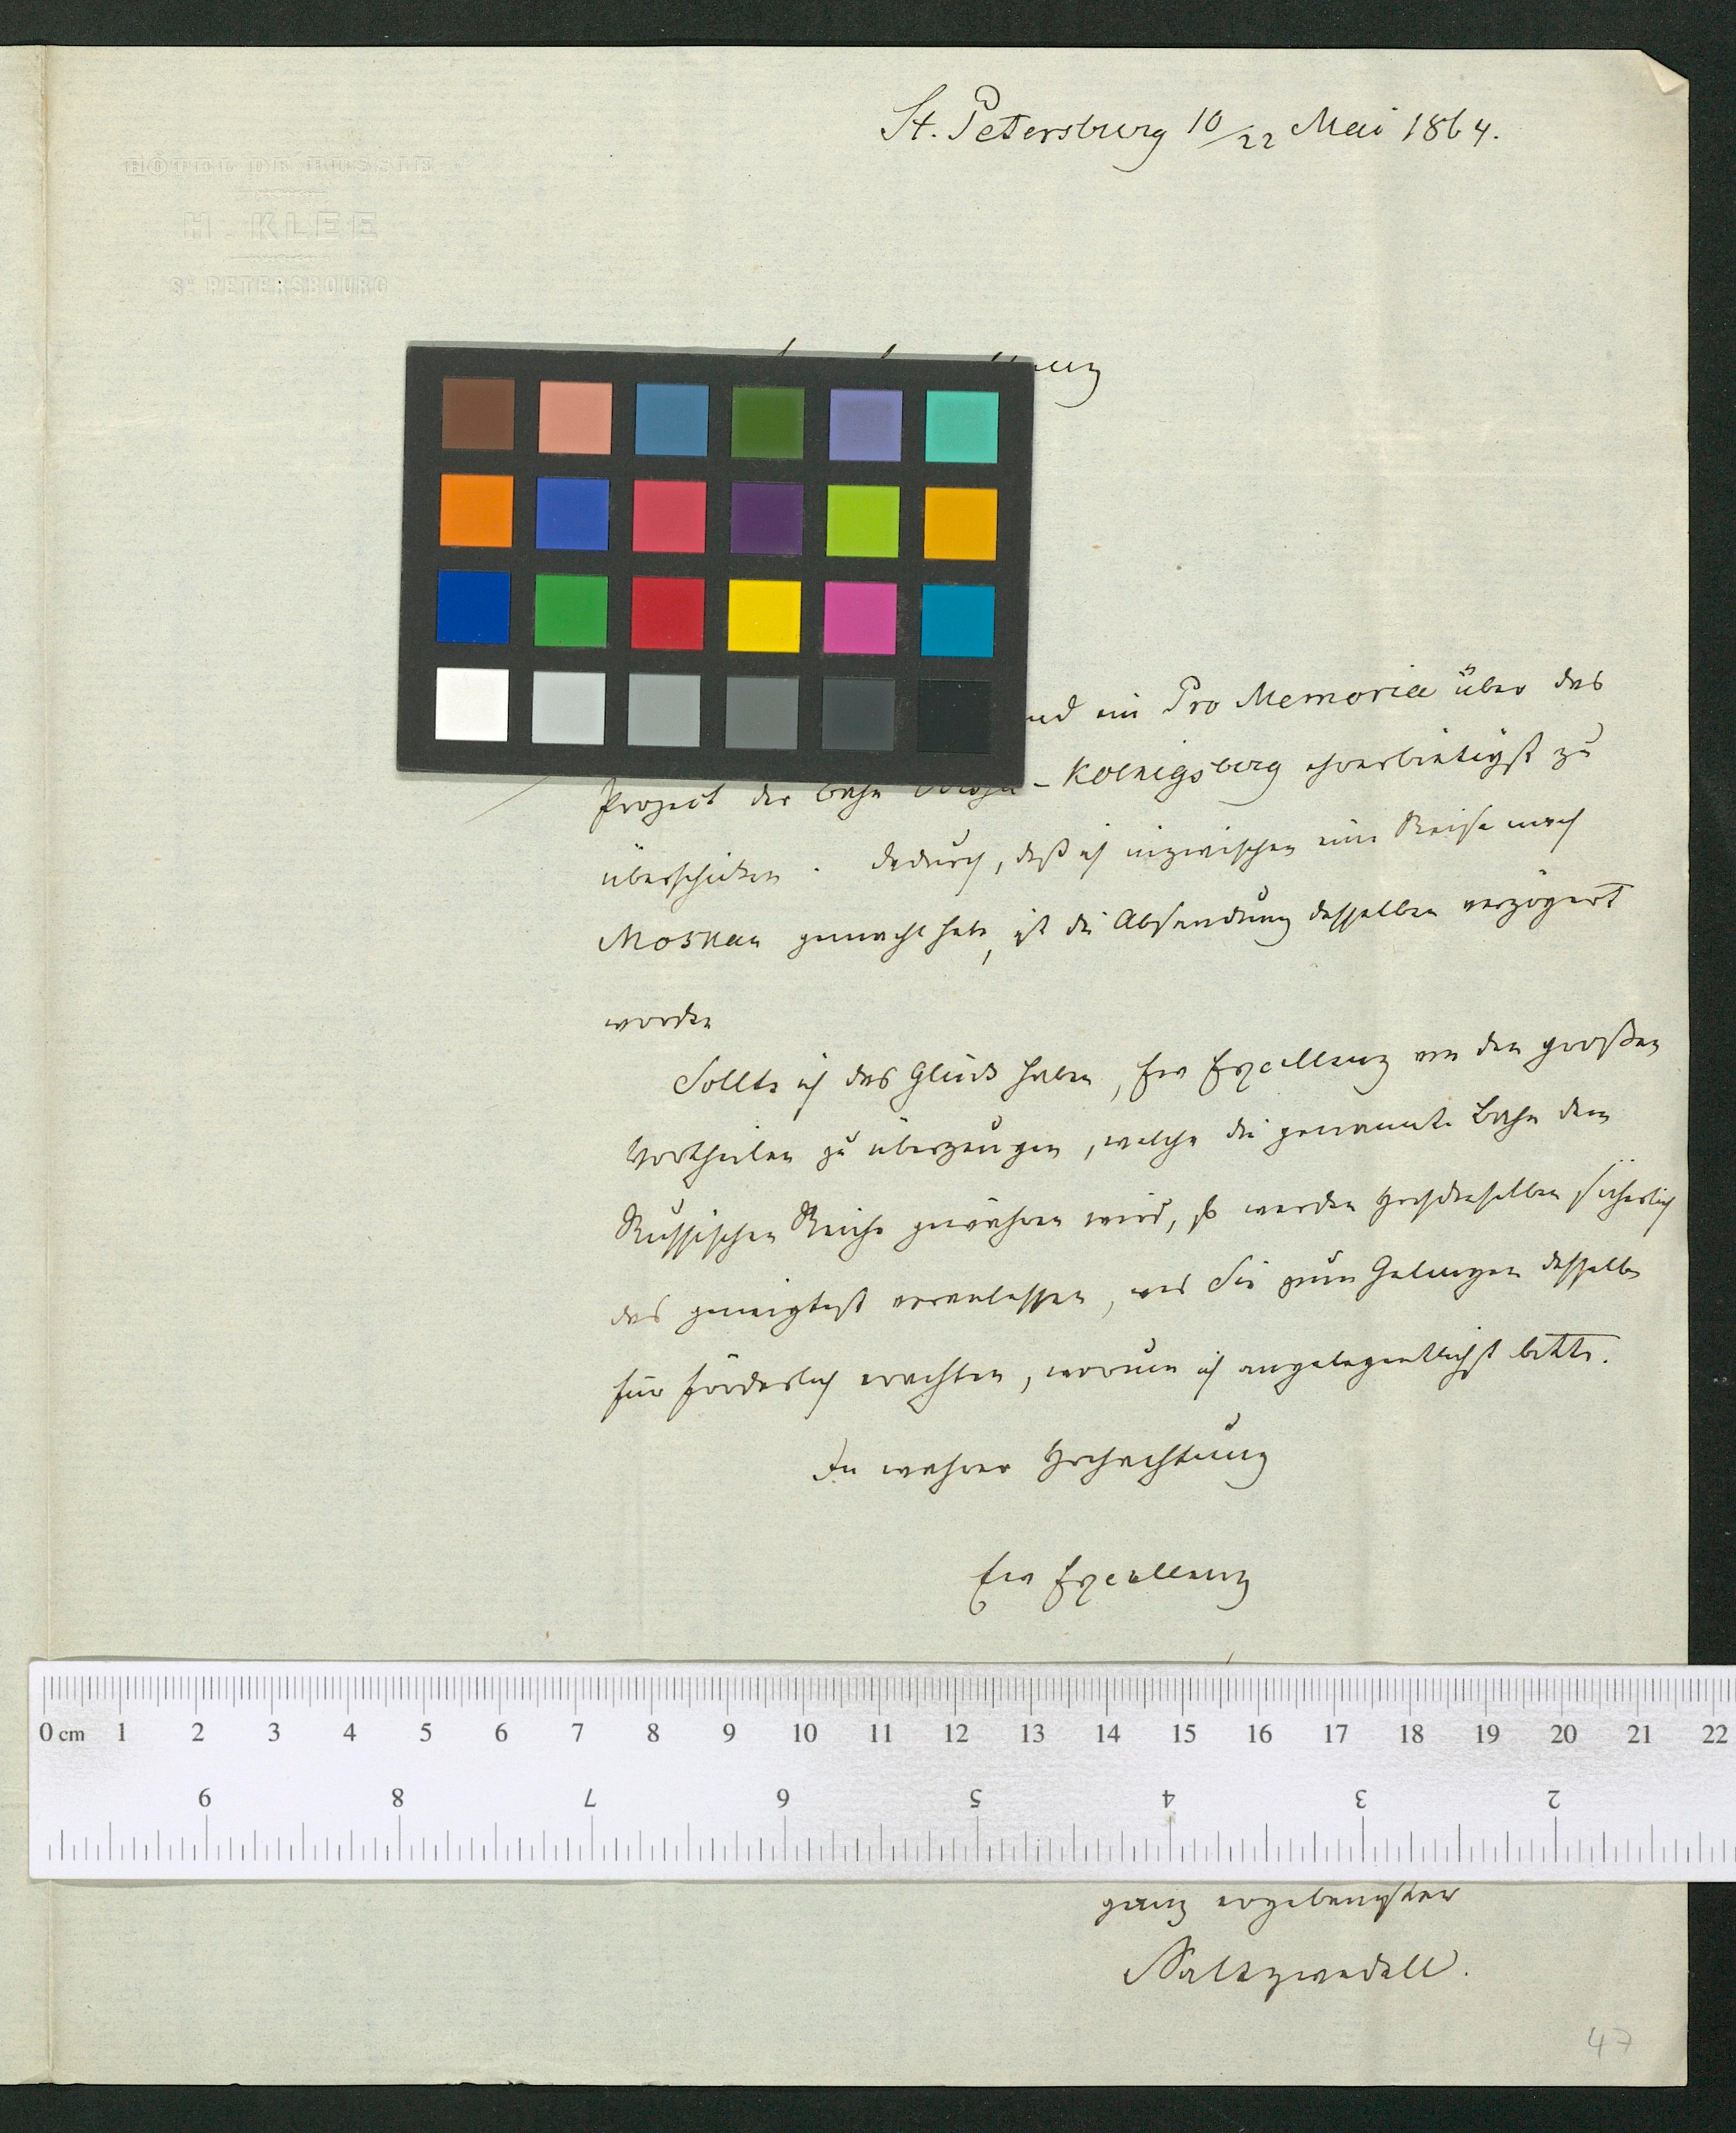 St. Petersburg 10/22 Mai 1864.
HÔTEL DE RUSSIE
H. KLEE
St PETERSBOURG
ein Pro Memoria über das
Project der Bahn - Koenigsberg ehrerbietigst zu
überschicken. Dadurch, daß ich inzwischen eine Reise nach
Moskau gemacht habe, ist die Absendung desselben verzögert
worden
Sollte ich das Glück haben, Ew Excellenz von den großen
Vortheilen zu überzeugen, welche die genannte Bahn dem
Russischen Reiche gewähren wird, so werden Hochdieselben sicherlich
das geneigtest veranlassen, was Sie zum Gelingen desselben
für förderlich erachten, worum ich angelegentlichst bitte.
In wahrer Hochachtung
Ew Excellenz
0 cm 1 2 3 4 5 6 7 8 9 10 11 12 13 14 15 16 17 18 19 20 21 22
9 8 7 6 5 4 3 2
ganz ergebenster
Saltzwedell.
47